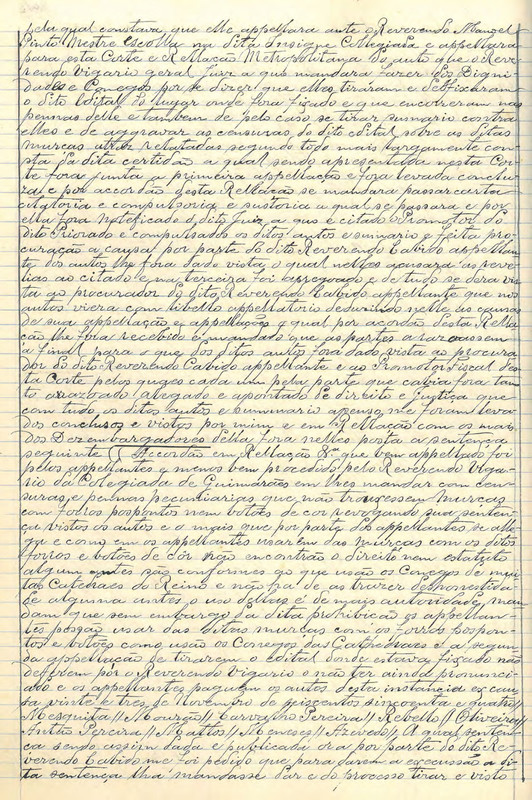 pela qual constava que elle appellara ante o Reverendo Manoel
Pinto Mestre Escolla na dita Insigne Collegiada e appellara
para esta Corte e Rellação Metropolitana do auto que o Reve-
rendo vigario geral Juiz a quo mandara fazer dos Digni-
dades e Conegos por se dizer que elles tiraram e desficaram
o dito edital do lugar onde fora fixado e que encorreram nas
pennas delle e tambem de pelo caso se tirar sumario contra
elles e de aggravar as censuras do dito edital sobre as ditas
murcas atraz relatadas segundo todo mais largamente con-
sta da dita certidão a qual sendo apresentada nesta Cor-
te fora junta a primeira appellação e fora levada conclu-
za, e por accordão desta Rellação se mandara passar carta
citatoria e compulsoria a qual se passara e por
ella fora notificado o dito Juiz a quo e citado o Promotor do
dito Priorado e compulsados os ditos autos e sumario e feita pro-
curação a causa por parte do dito Reverendo Cabido appellan-
te dos autos lhe fora dado vista o qual nelles acusara as reve-
lias ao citado e na terceira foi apregoado e de tudo se dera vis-
ta ao procurador do dito Reverendo Cabido appellante que nos
autos viera com libello appellatorio deduzindo nelle as causas
de sua appellação e appellações o qual por acordão desta Rella-
ção lhe fora recebido e mandado que as partes arazoassem
a final para o que dos ditos autos fora dado vista ao procura-
dor do dito Reverendo Cabido appellante e ao Promotor fiscal des-
ta Corte pelos quaes cada um pela parte que cabia fora tan-
to arazoado alegado e apontado de direito e justiça que
com tudo os ditos autos e summario apenso me foram leva-
dos conclusos e vistos por mim e em Rellação com os mais
dos Dezembargadores della fora nelles posta a sentença
seguinte // Accordão em Rellação &a que bem appellado foi
pelos appellantes e menos bem procedido pelo Reverendo Viga-
rio da Colegiada de Guimarães em lhes mandar com cen-
suras e pennas pecuniarias que não trouxessem murcas
com forros pospontos nem botões de cor revogando sua senten-
ça vistos os autos e o mais que por parte dos appellantes se alle-
ga e como em os appellantes usarem das murcas com os ditos
forros e botões de côr não encontrão o direito nem estatuto
algum antes são conformes ao que usão os Conegos de mui-
tas Catedraes do Reino e não ha de as trazer deshonestida-
de alguma antes o uso dellas é de mais autoridade, man-
dam que sem embargo da dita prohibição os appellan-
tes possão usar das ditas murcas com os forros pospon-
tos e botões como usão os Conegos das Cathedraes e a segun-
da appellação de tirarem o edital donde estava fixado não
defferem por o Reverendo Vigario o não ter ainda pronunci-
ado e os appellantes paguem os autos desta instancia ex cau-
sa vinte e tres de novembro de seiscentos sincoenta e quatro //
Mesquita // Mourão // Carvalho Pereira // Rebello // Oliveira //
Antão Pereira // Mattos // Meneses // Azevedo // A qual senten-
ça sendo assim dada e publicada ora por parte do dito Re-
verendo Cabido me foi pedido que para darem a execussão a di-
ta sentença lha mandasse dar e do processo tirar e visto